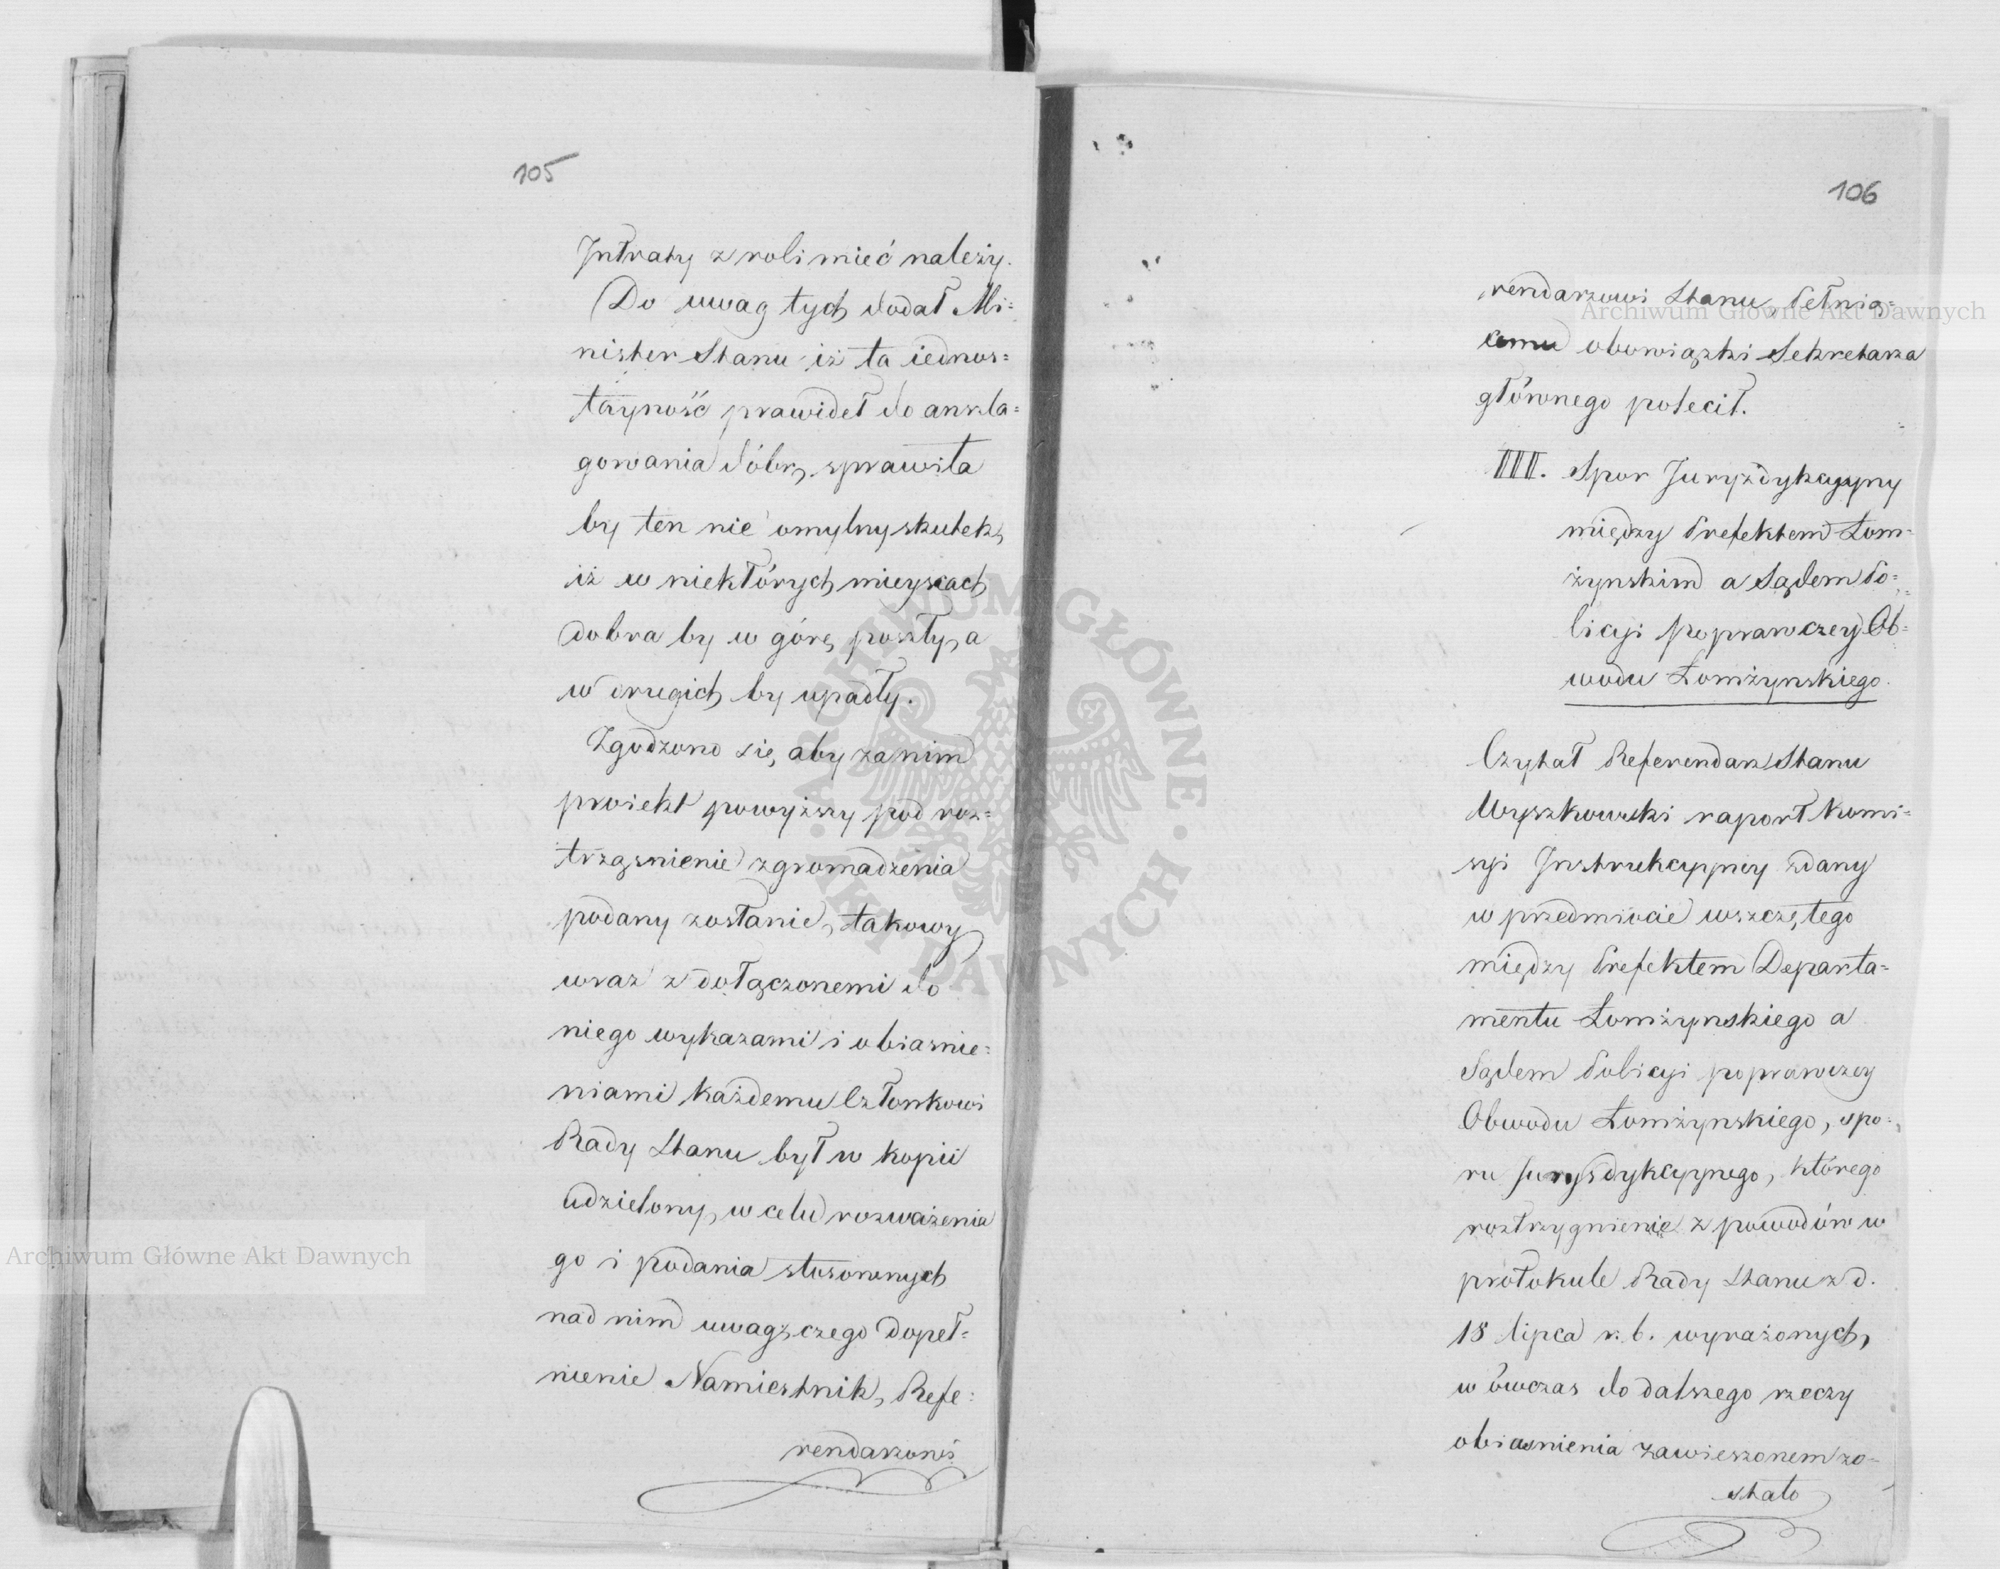 105
Intraty z roli mieć należy.
Do uwag tych dodał Mi=
nister Stanu iż ta iednos=
tayność prawideł do anszla=
gowania dóbr, sprawiła
by ten nie omylny skutek,
iż w niektórych mieyscach
dobra by w górę poszły, a
w drugich by upadły.
Zgodzono się, aby zanim
proiekt powyższy pod roz=
trząśnienie zgromadzenia
podany zostanie, takowy
wraz z dołączonemi do
niego wykazami i obiaśnie=
niami każdemu Członkowi
Rady Stanu był w kopii
udzielony, w celu rozważenia
go i podania stosownych
nad nim uwag, czego dopeł=
nienie Namiestnik, Refe=
rendarzowi
106
rendarzowi Stanu, Pełnią=
cemu obowiązki Sekretarza
głównego polecił.
III. Spor Juryzdykcyyny
między Prefektem Łom=
żynskim a Sądem Po=
licyi poprawczey Ob=
wodu Łomżynskiego.
Czytał Referendarz Stanu
Wyszkowski raport Komi=
syi Instrukcyyney zdany
w przedmiocie wszczętego
między Prefektem Departa=
mentu Łomżynskiego a
Sądem Policyi poprawczey
Obwodu Łomżynskiego, spo=
ru jurysdykcyynego, którego
roztrzygnienie z powodów w
protokule Rady Stanu z d.
18 lipca r. b. wyrażonych,
w ówczas do dalszego rzeczy
obiasnienia zawieszonem zo=
stało
Archiwum Główne Akt Dawnych
Archiwum Główne Akt Dawnych
ARCHIWUM GŁÓWNE
AKT DAWNYCH